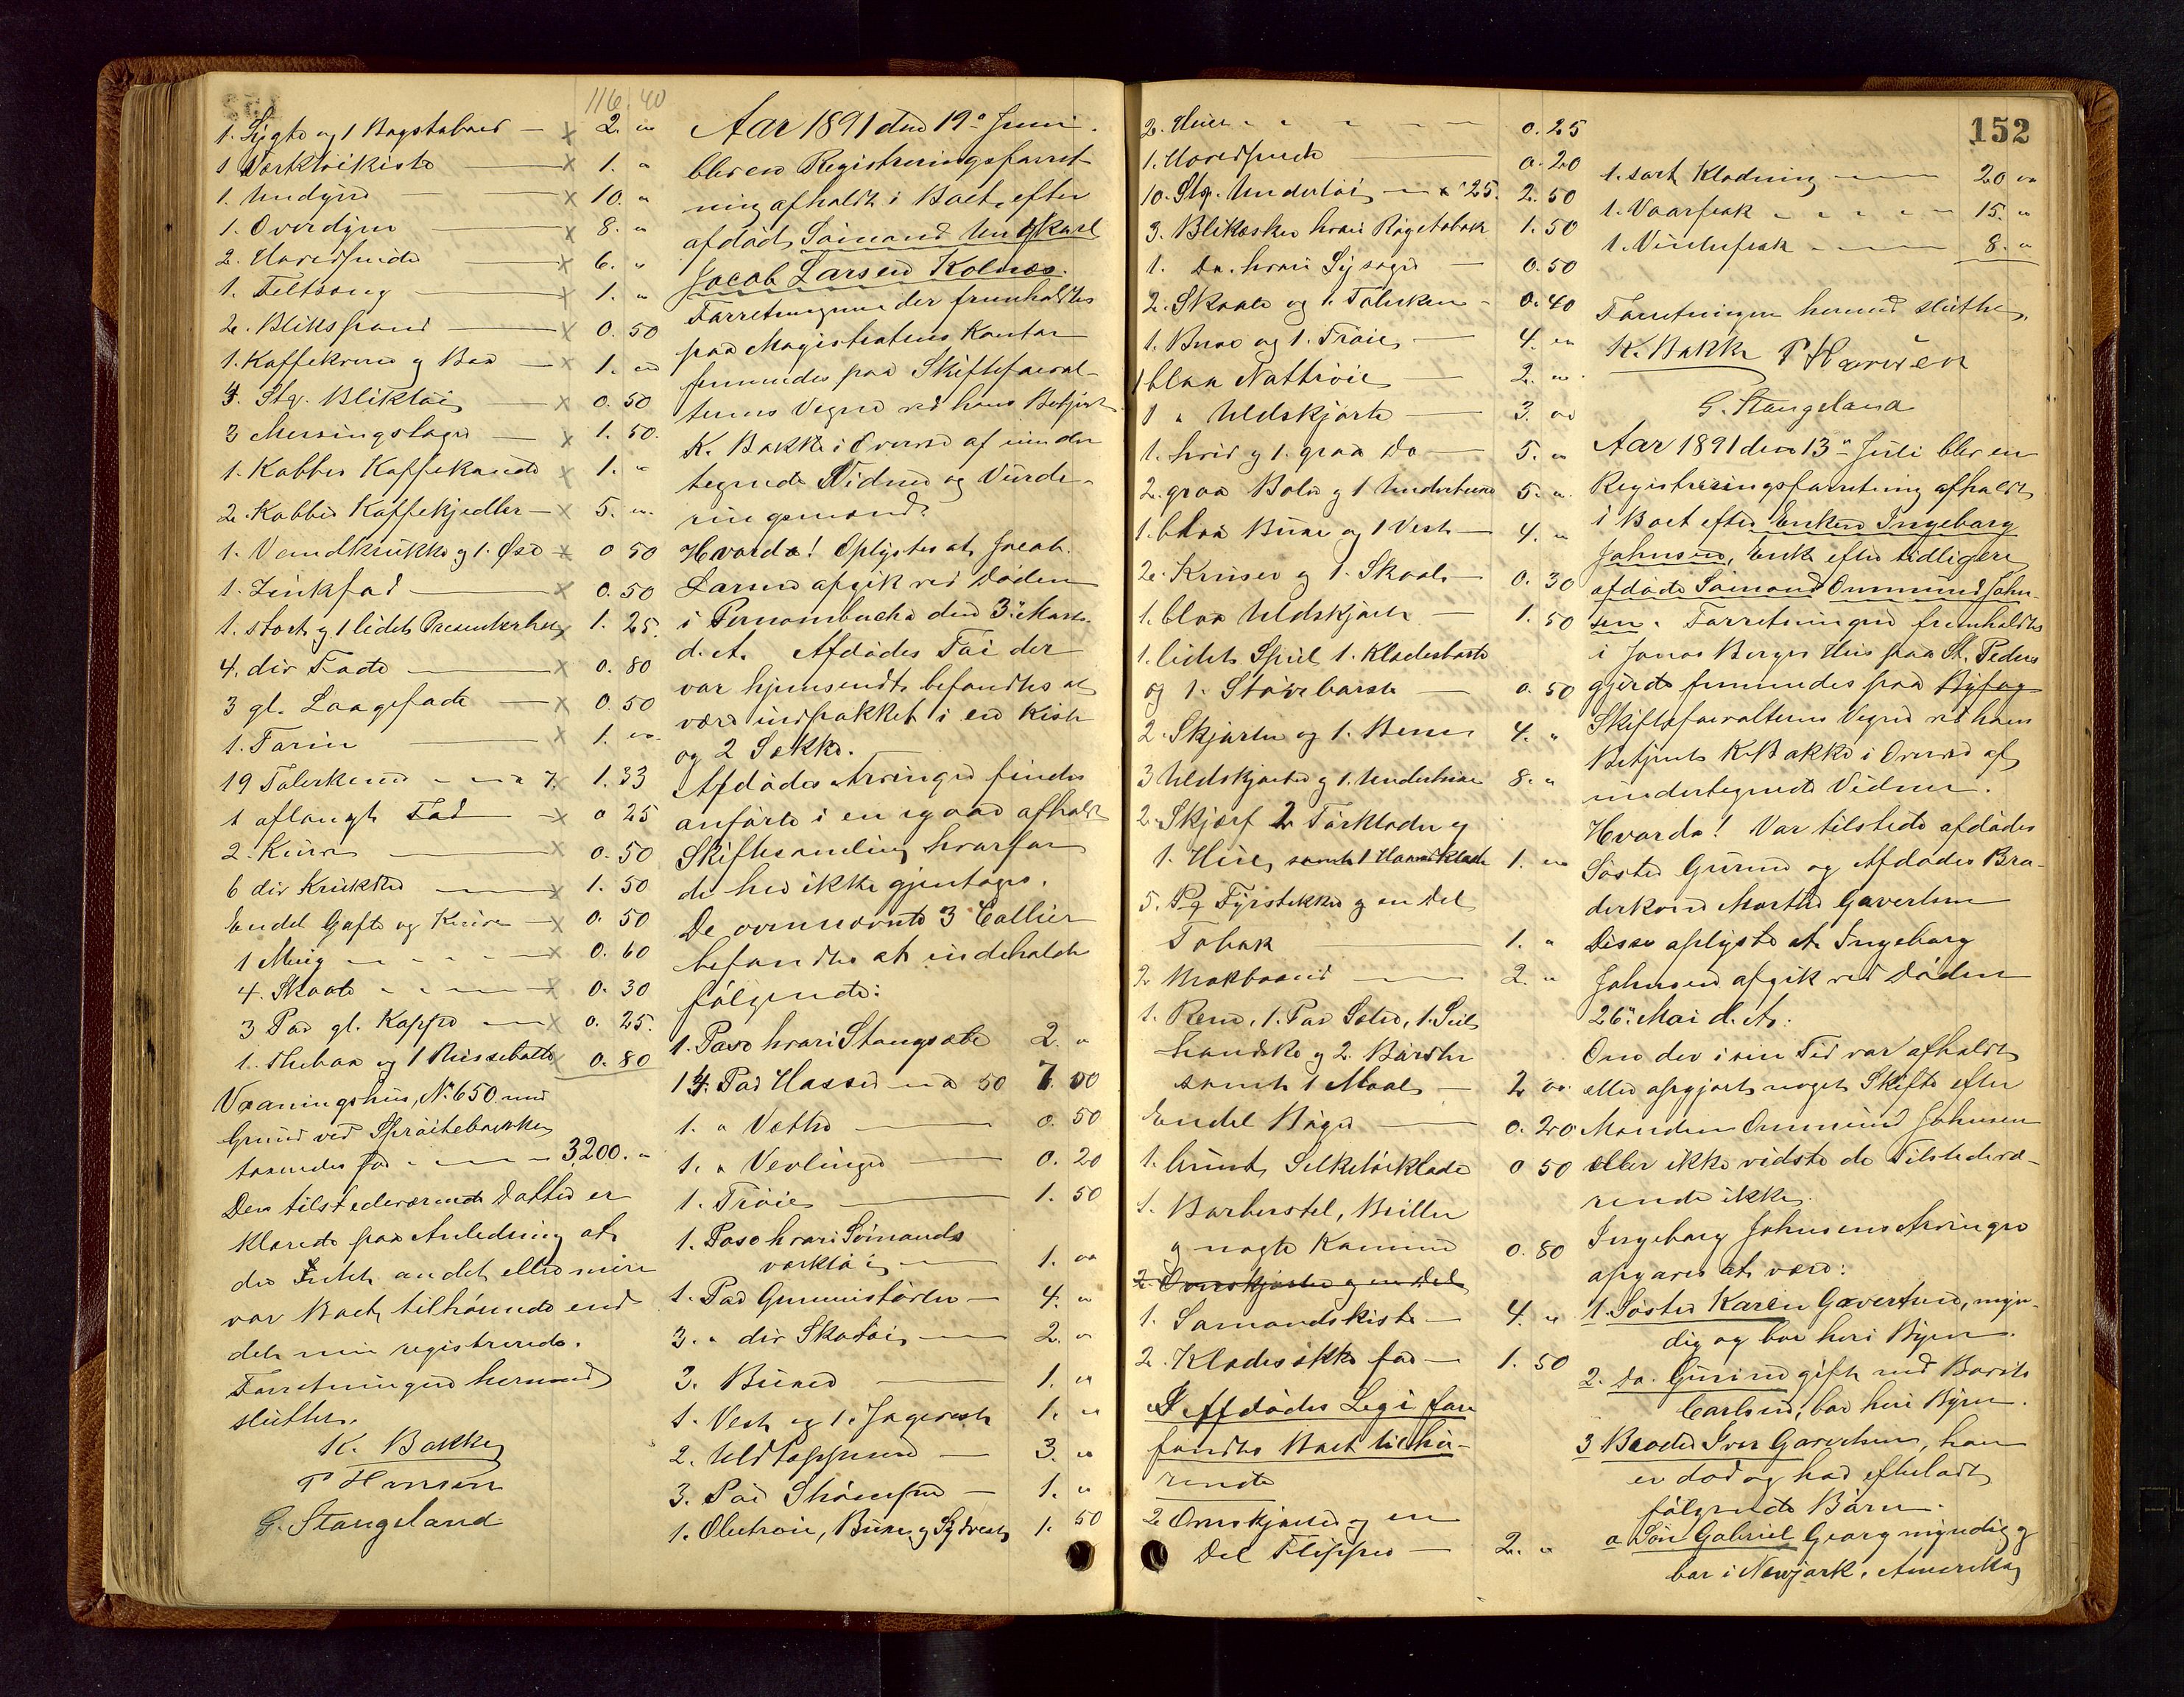 116.40
1. Lygte og 1 Bagstebord — x 2. "
1 Værktøikiste — x 1. "
1. Underdyne — x 10. "
1. Overdyne — x 8. "
2. Hovedpude — x 6. "
1. Feltseng — x 1. "
2. Blikspand — x 0.50
1. Kaffekværn og Box — x 1. "
4. Stg. Bliktøi — x 0.50
3 Messingstager — x 1.50.
1. Kobber Kaffekande x 1. "
2. Kobber Kaffekjedler — x 5. "
1. Vandkrukke og 1. Øse x 0 50
1. Zinkfad — x 0.50
1. stort og 1 lidet Presenterbr. x 1.25.
4. div Fade — x 0.80
3 gl. Laagefade — x 0.50
1. Terrin — x 1. "
19 Talerkener — a 7. x 1.33
1 aflangt Fad — x 0 25
2. Kurve — x 0.50
6 div Krukker — x 1.50
Endel Gafler og Knive — x 0.50
1 Mug — x 0.60
4. Skaale — x 0.30
3 Par gl. Kopper — x 0.25.
1. Thebox og 1 Missebøtte x 0.80
Vaaningshus, No 650 med
Grund ved Sprøitebakken
taxeredes for — 3200. "
Den tilstedeværende Datter er
klærede paa Anledning at
der Intet andet eller mere
var Boet tilhørende end
det nu registrerede.
Forretningen hermed
sluttet.
K. Bakke
P Hansen
G. Stangeland
Aar 1891 den 19de Juni
blev en Registreringsforret-
ning afholdt i Boet efter
afdød Sømand Ungkarl
Jacob Larsen Kolnes.
Forretningen der fremholdtes
paa Magistratens Kontor
fremmedes paa Skifteforval-
terens Vegne ved hans Betjent
K. Bakke i Overvær af under
tegnede Vidner og Vurde-
ringsmænd.
Hvorda! Oplystes at Jacob
Larsen afgik ved Døden
i Pernambucha den 3die Marts
d. A. Afdødes Tøi der
var hjemsendt befandtes at
være indpakket i en Kiste
og 2 Sække.
Afdødes Arvinger findes
anførte i en igaar afholdt
Skiftesamling hvorfor
de her ikke gjentages.
De ovennævnte 3 Collier
befandtes at indeholde
følgende:
1. Pose hvori Stangsabe 2. "
14. Par Hoser a 50 7.00
1. " Votter — 0.50
1. " Vevlinger — 0.20
1. Trøie — 1.50
1. Pose hvori Sømands
værktøi — 1. "
1. Par Gummistøvler — 4. "
3. " div Skotøi — 2. "
3. Buxer — 1. "
1. Vest og 1. Jagervest 1. "
2. Uldtæpper — 3. "
3. Par Strømper — 1. "
1. Olietrøie, Buxe og Sydvest 1.50
152
2. Huer — 0.25
1. Hovedpude — 0.20
10. Stg. Undertøi — a "25. 2.50
3. Blikæsker hvori Røgetobak 1.50
1. Do. hvori Sysager — 0.50
2. Skaale og 1. Talerken — 0.40
1. Buxe og 1. Trøie — 4. "
1 blaa Nattrøie — 2. "
1 " Uldskjorte — 3. "
1. hvid og 1. graa Do — 5. "
2. graa Boler og 1 Underbuxe 5. "
1. blaa Buxe og 1 Vest — 4. "
2. Kruser og 1. Skaal — 0.30
1. blaa Uldskjorte — 1.50
1. lidet Speil 1. Kladesbørste
og 1. Støvebørste — 0.50
2. Skjorter og 1. Benner 4. "
3 Uldskjorter og 1. Underbuxe 8. "
2. Skjærf 2 Tørklæder og
1. Hue, samt 1 Haandklæde 1. "
5. Pg Fyrstikker og en Del
Tobak — 1. "
2 Vrakbaand — 2. "
1. Rem, 1. Par Seler, 1. Seil
handske og 2. Børster
samt 1 Maal — 2 "
Endel Bøger — 0.20
1. hvidt Silketørklæde 0 50
1. Barberstel, Briller
og nogle Kammer 0.80
2. Overskjorter og en Del
1. Sømandskiste — 4. "
2. Klædesække for — 1.50
I Afdødes Logi fore
fandtes Boet tilhø-
rende
2. Overskjorter og en
Del Flipper — 2. "
1. sort Klædning — 20 "
1. Vaarfrak — 15. "
1. Vinterfrak — 8. "
Forretningen hermed sluttet.
K. Bakke P Hansen
G. Stangeland
Aar 1891 den 13de Juli blev en
Registreringsforretning afholdt
i Boet efter Enken Ingeborg
Johnsen, Enke efter tidligere
afdøde Sømand Ommund John-
sen. Forretningen fremholdtes
i Jonas Berges Hus paa St. Peders
gjerde fremmedes paa Byfog
Skifteforvalterens Vegne ved hans
Betjent K. Bakke i Overvær af
undertegnede Vidner.
Hvorda! Var tilstede afdødes
Søster Gurine og Afdødes Bro-
derkone Marthe Gavertsen
Disse oplyste at Ingeborg
Johnsen afgik ved Døden
26de Mai d. A.
Om der i sin Tid var afholdt
eller opgjort noget Skifte efter
Manden Ommund Johnsen
eller ikke vidste de Tilstedevæ-
rende ikke.
Ingeborg Johnsens Arvinger
opgaves at være:
1. Søster Karen Gavertsen, myn-
dig og bor her i Byen.
2. Do. Gurine gift med Børite
Carlsen, bor her i Byen.
3 Broder Iver Gavertsen, han
er død og har efterladt
følgende Børn.
a Søn Gabriel Georg myndig og
bor i Newjork, Amerika